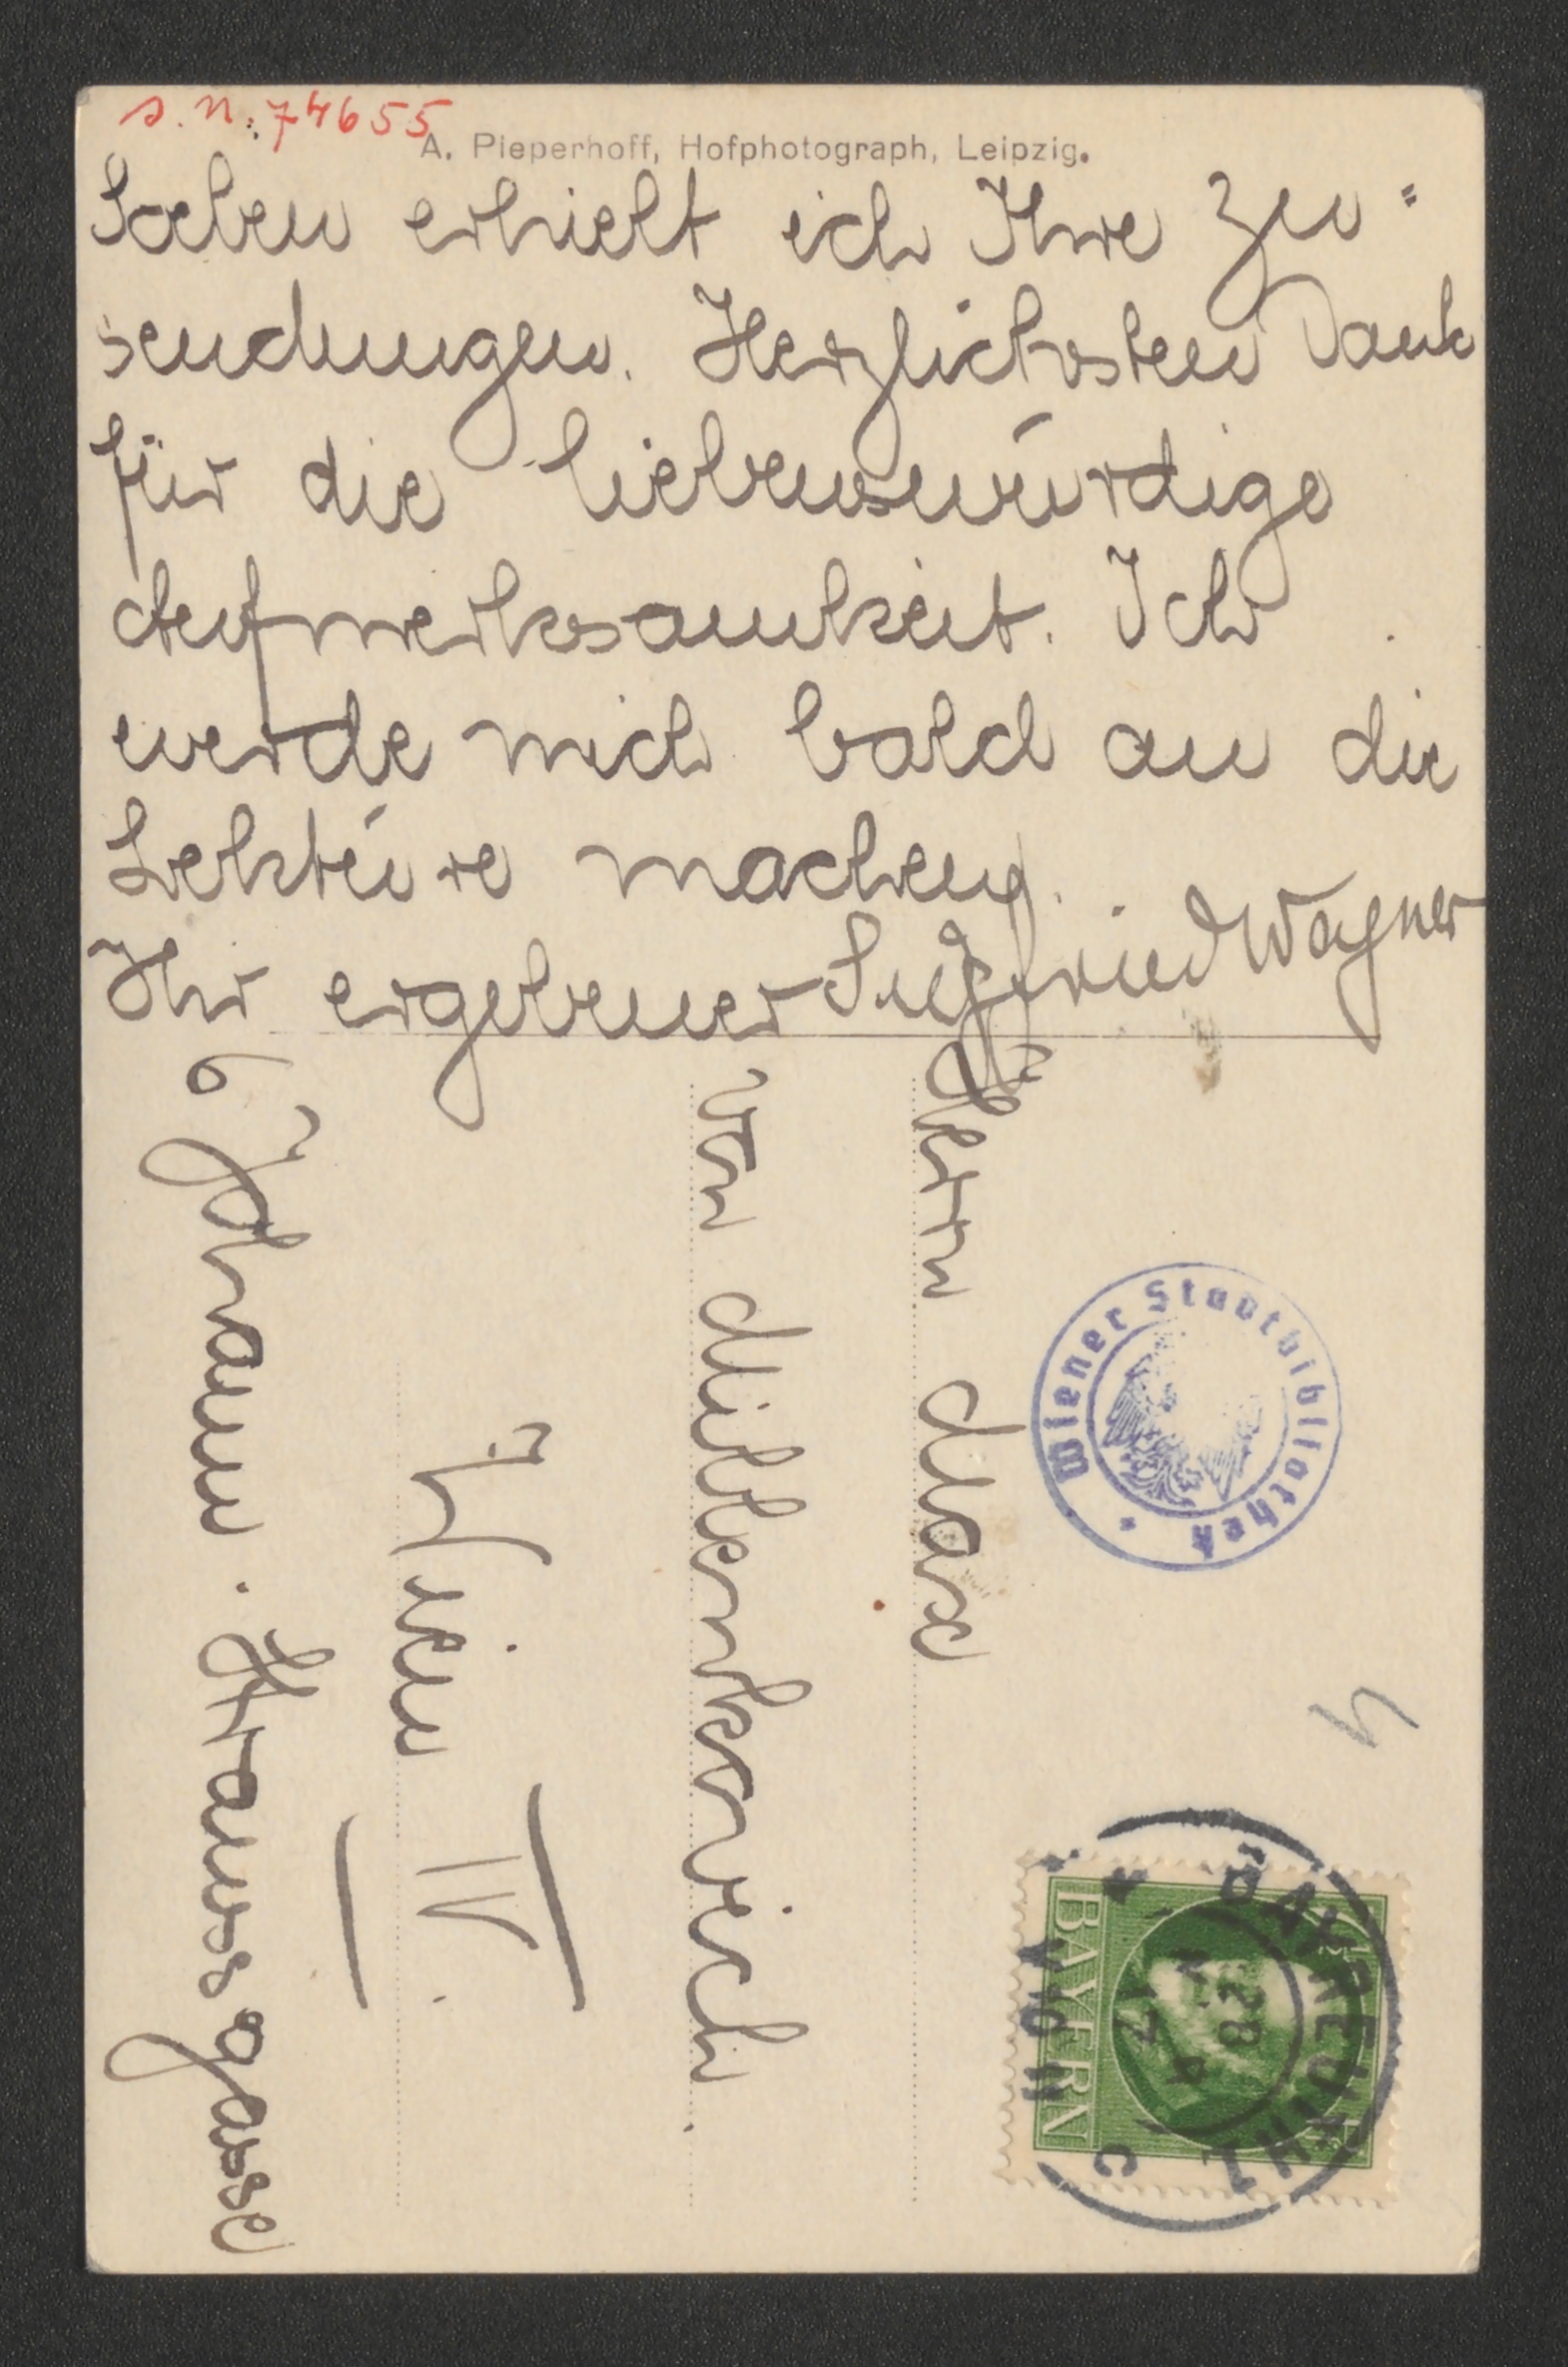 s. n. 74655
A. Pieperhoff, Hofphotograph, Leipzig.
Soeben erhielt ich Ihre Zu=
sendungen. Herzlichsten Dank
für die liebenswürdige
Aufmerksamkeit. Ich
werde mich bald an die
Lektüre machen.
Ihr ergebener Siegfried Wagner
Herrn Max
von Millenkovich.
Wien IV.
6 Johann. Straussgasse
Wiener Stadtbibliothek
4
BAYREUTH
BAYERN